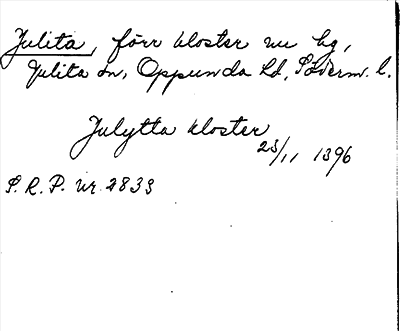 Julita, förr kloster nu hg,
Julita sn, Oppunda hd, Söderm. l.
Julytta kloster
23/11 1396
S. R. P. nr 2833